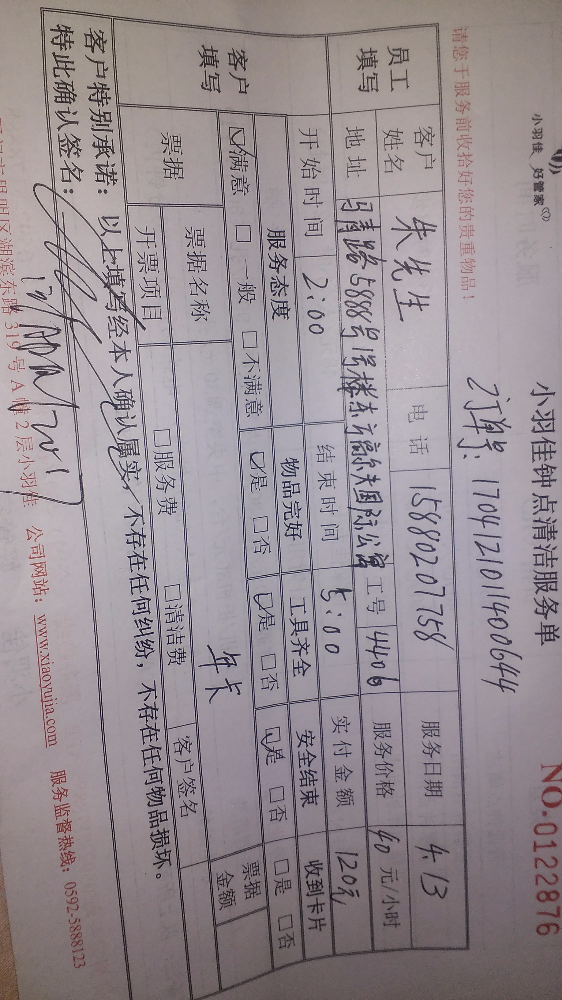 小羽佳 好管家
小羽佳钟点清洁服务单
NO.0122876
订单号: 170412101400644
请您于服务前收拾好您的贵重物品!
员工填写
客户姓名 朱先生 电话 15880207758 服务日期 4.13
地址 马青路5888号1号楼东方高尔夫国际公寓 工号 4406 服务价格 40 元/小时
开始时间 2:00 结束时间 5:00 实付金额 120元
客户填写
服务态度 物品完好 工具齐全 安全结束 收到卡片
☑满意 □一般 □不满意 ☑是 □否 ☑是 □否 ☑是 □否 □是 □否
票据 票据名称 年卡 票据金额
开票项目 □服务费 □清洁费 客户签名
客户特别承诺:以上填写经本人确认属实,不存在任何纠纷,不存在任何物品损坏。
特此确认签名:
明区湖滨东路 319 号 A 幢 2 层小羽佳 公司网站:www.xiaoyujia.com 服务监督热线:0592-5888123